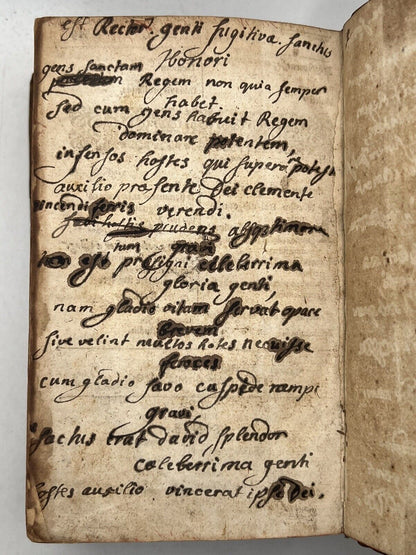 est Rector genti fugitivæ sanctus
Honori
gens sanctam
Regem non quia semper
habet.
Sed cum gens habuit Regem
dominare potentem,
infensos hostes qui superare potest
auxilio præsente Dei clemente
vincendi ferris verendi.
sævi hostis prudens absq timore
tum gravi
est prosigni celeberrima
gloria genti,
nam gladio vitam servat
brevem
sive velint multos hostes
feroces
cum gladio sævo cuspide nempe
gravi,
sachus erat david, splendor
celeberrima genti
hostes auxilio vincerat ipse Dei.